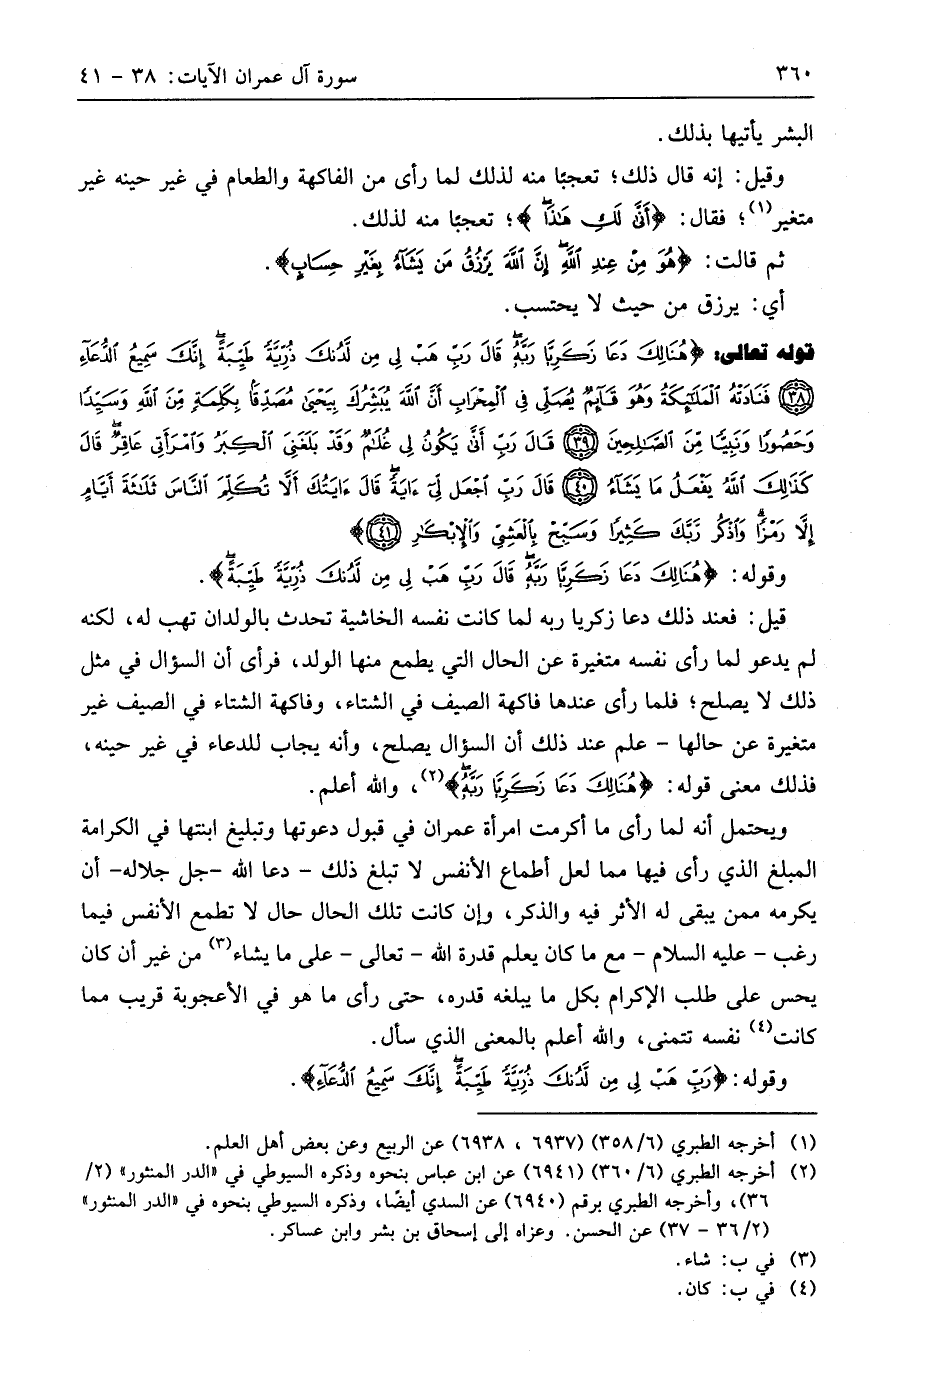 ٣٦٠ سورة آل عمران الآيات: ٣٨ - ٤١
البشر يأتيها بذلك.
وقيل: إنه قال ذلك؛ تعجبًا منه لذلك لما رأى من الفاكهة والطعام في غير حينه غير
متغير(١)؛ فقال: ﴿أَنَّىٰ لَكِ هَٰذَاۖ﴾؛ تعجبًا منه لذلك.
ثم قالت: ﴿هُوَ مِنْ عِندِ ٱللَّهِۖ إِنَّ ٱللَّهَ يَرْزُقُ مَن يَشَآءُ بِغَيْرِ حِسَابٍ﴾.
أي: يرزق من حيث لا يحتسب.
قوله تعالى: ﴿هُنَالِكَ دَعَا زَكَرِيَّا رَبَّهُۥۖ قَالَ رَبِّ هَبْ لِى مِن لَّدُنكَ ذُرِّيَّةً طَيِّبَةًۖ إِنَّكَ سَمِيعُ ٱلدُّعَآءِ
﴿٣٨﴾ فَنَادَتْهُ ٱلْمَلَٰٓئِكَةُ وَهُوَ قَآئِمٌ يُصَلِّى فِى ٱلْمِحْرَابِ أَنَّ ٱللَّهَ يُبَشِّرُكَ بِيَحْيَىٰ مُصَدِّقًۢا بِكَلِمَةٍ مِّنَ ٱللَّهِ وَسَيِّدًا
وَحَصُورًا وَنَبِيًّا مِّنَ ٱلصَّٰلِحِينَ ﴿٣٩﴾ قَالَ رَبِّ أَنَّىٰ يَكُونُ لِى غُلَٰمٌ وَقَدْ بَلَغَنِىَ ٱلْكِبَرُ وَٱمْرَأَتِى عَاقِرٌۖ قَالَ
كَذَٰلِكَ ٱللَّهُ يَفْعَلُ مَا يَشَآءُ ﴿٤٠﴾ قَالَ رَبِّ ٱجْعَل لِّىٓ ءَايَةًۖ قَالَ ءَايَتُكَ أَلَّا تُكَلِّمَ ٱلنَّاسَ ثَلَٰثَةَ أَيَّامٍ
إِلَّا رَمْزًاۗ وَٱذْكُر رَّبَّكَ كَثِيرًا وَسَبِّحْ بِٱلْعَشِىِّ وَٱلْإِبْكَٰرِ ﴿٤١﴾﴾
وقوله: ﴿هُنَالِكَ دَعَا زَكَرِيَّا رَبَّهُۥۖ قَالَ رَبِّ هَبْ لِى مِن لَّدُنكَ ذُرِّيَّةً طَيِّبَةًۖ﴾.
قيل: فعند ذلك دعا زكريا ربه لما كانت نفسه الخاشية تحدث بالولدان تهب له، لكنه
لم يدعو لما رأى نفسه متغيرة عن الحال التي يطمع منها الولد، فرأى أن السؤال في مثل
ذلك لا يصلح؛ فلما رأى عندها فاكهة الصيف في الشتاء، وفاكهة الشتاء في الصيف غير
متغيرة عن حالها - علم عند ذلك أن السؤال يصلح، وأنه يجاب للدعاء في غير حينه،
فذلك معنى قوله: ﴿هُنَالِكَ دَعَا زَكَرِيَّا رَبَّهُۥۖ﴾(٢)، والله أعلم.
ويحتمل أنه لما رأى ما أكرمت امرأة عمران في قبول دعوتها وتبليغ ابنتها في الكرامة
المبلغ الذي رأى فيها مما لعل أطماع الأنفس لا تبلغ ذلك - دعا الله -جل جلاله- أن
يكرمه ممن يبقى له الأثر فيه والذكر، وإن كانت تلك الحال حال لا تطمع الأنفس فيما
رغب - عليه السلام - مع ما كان يعلم قدرة الله - تعالى - على ما يشاء(٣) من غير أن كان
يحس على طلب الإكرام بكل ما يبلغه قدره، حتى رأى ما هو في الأعجوبة قريب مما
كانت(٤) نفسه تتمنى، والله أعلم بالمعنى الذي سأل.
وقوله: ﴿رَبِّ هَبْ لِى مِن لَّدُنكَ ذُرِّيَّةً طَيِّبَةًۖ إِنَّكَ سَمِيعُ ٱلدُّعَآءِ﴾.
(١) أخرجه الطبري (٣٥٨/٦) (٦٩٣٧ ، ٦٩٣٨) عن الربيع وعن بعض أهل العلم.
(٢) أخرجه الطبري (٣٦٠/٦) (٦٩٤١) عن ابن عباس بنحوه وذكره السيوطي في «الدر المنثور» (٢/
٣٦)، وأخرجه الطبري برقم (٦٩٤٠) عن السدي أيضًا، وذكره السيوطي بنحوه في «الدر المنثور»
(٣٦/٢ - ٣٧) عن الحسن. وعزاه إلى إسحاق بن بشر وابن عساكر.
(٣) في ب: شاء.
(٤) في ب: كان.